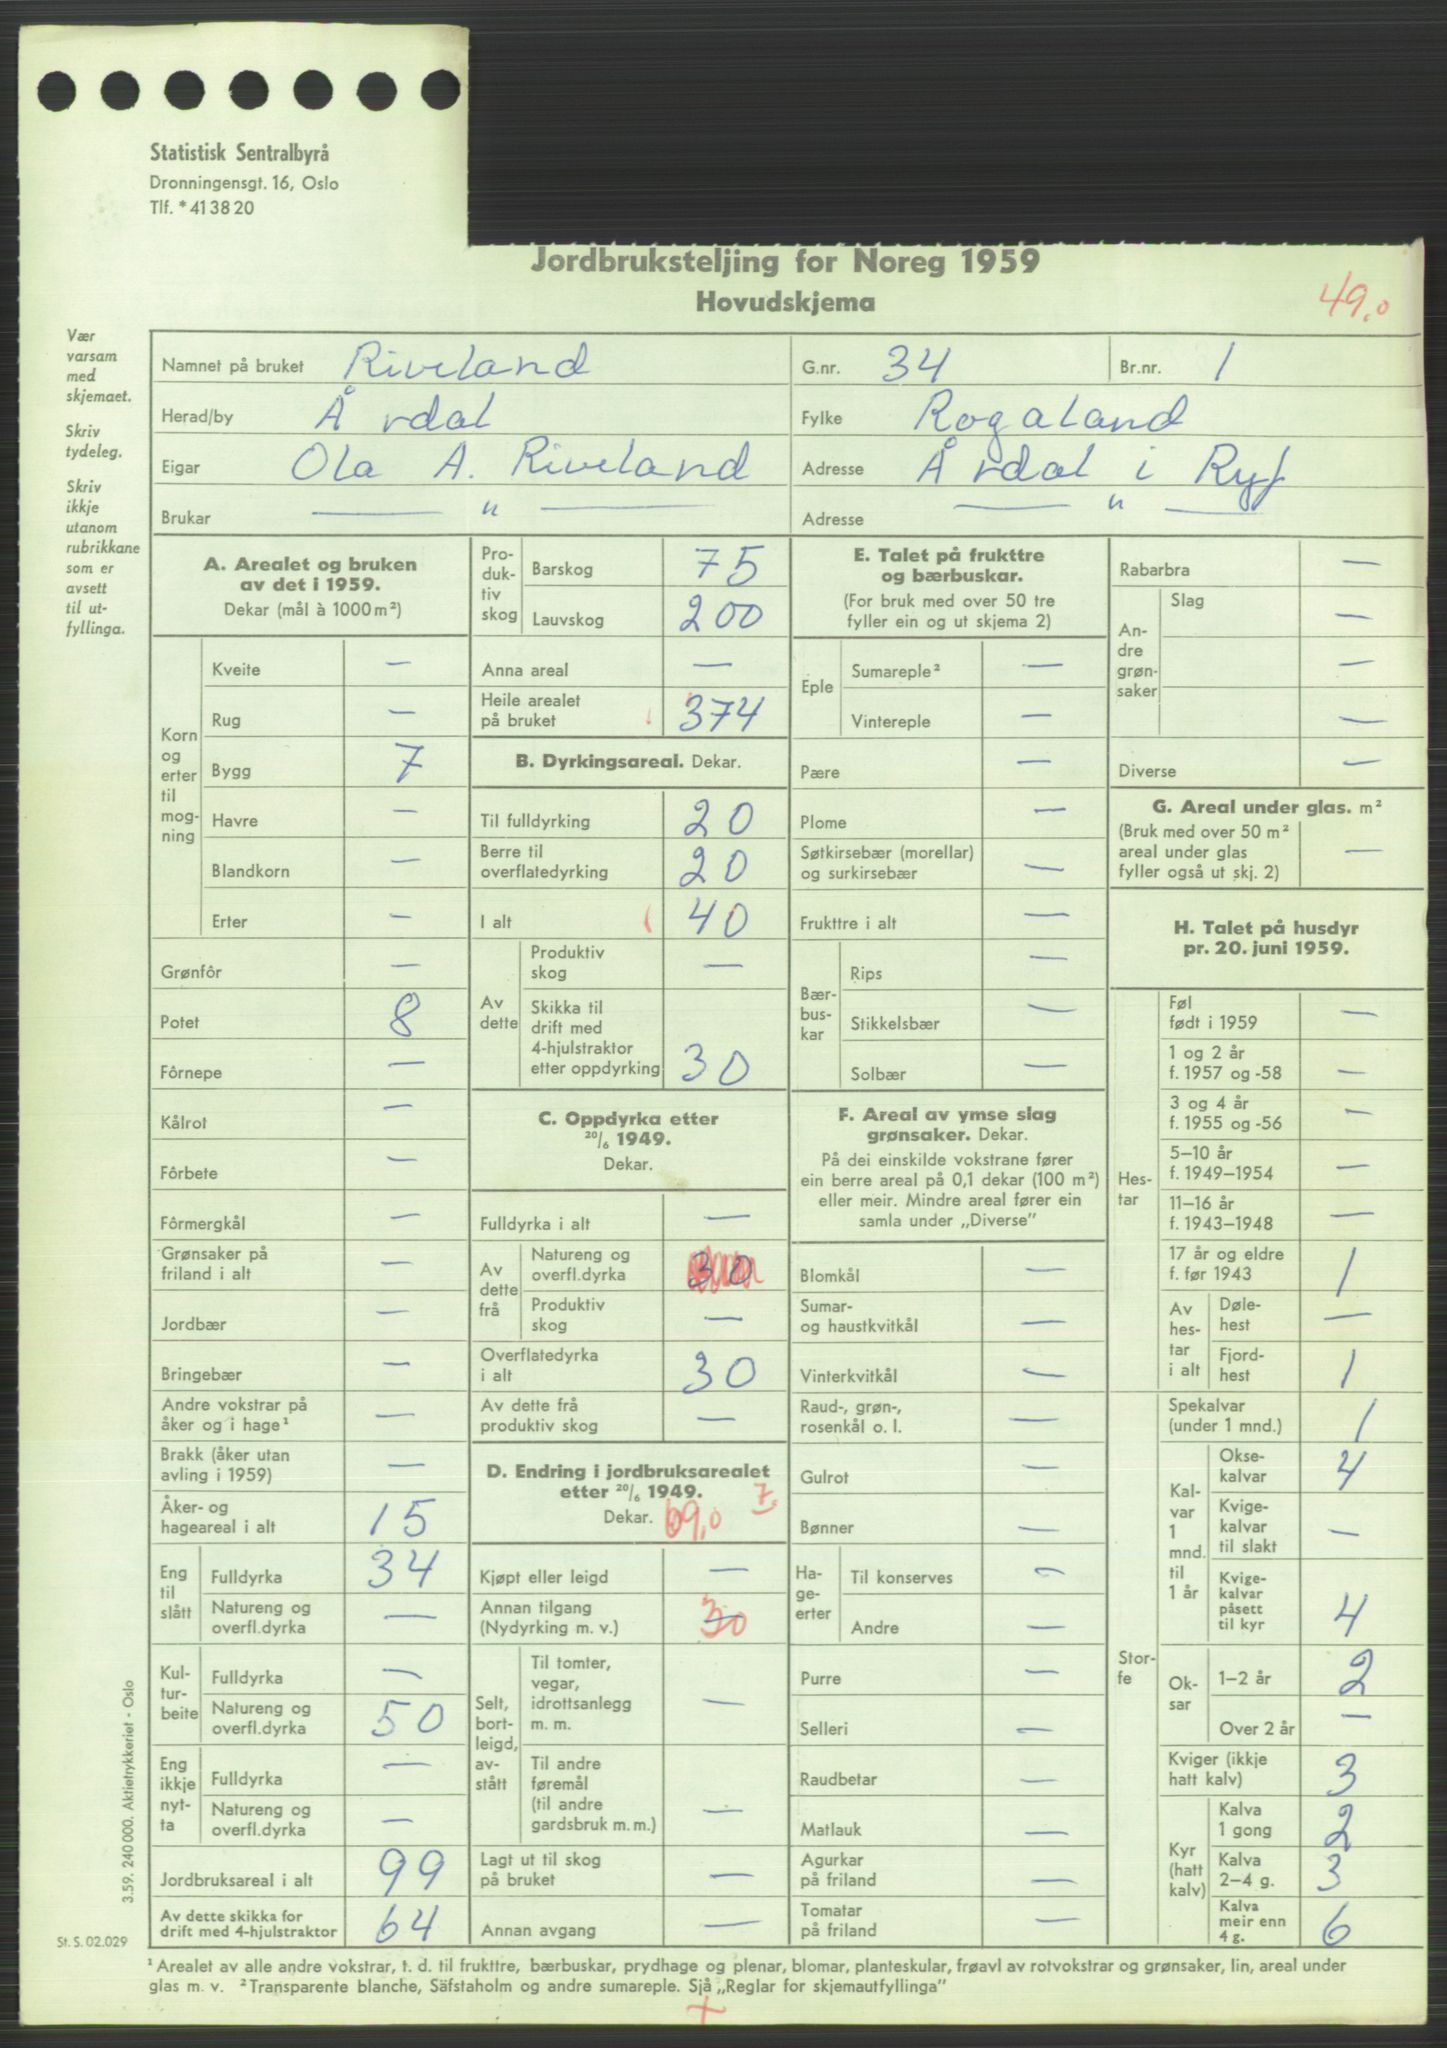 Statistisk Sentralbyrå
Dronningensgt. 16, Oslo
Tlf. * 41 38 20
Jordbruksteljing for Noreg 1959
Hovudskjema
49,0
Vær
varsam
med
skjemaet.
Skriv
tydeleg.
Skriv
ikkje
utanom
rubrikkane
som er
avsett
til ut-
fyllinga.
Namnet på bruket Riveland G.nr. 34 Br.nr. 1
Herad/by Årdal Fylke Rogaland
Eigar Ola A. Riveland Adresse Årdal i Ryf
Brukar — " — Adresse — " —
A. Arealet og bruken
av det i 1959.
Dekar (mål à 1000 m²)
Korn
og
erter
til
mog-
ning
Kveite —
Rug —
Bygg 7
Havre —
Blandkorn —
Erter —
Grønfôr —
Potet 8
Fôrnepe —
Kålrot —
Fôrbete —
Fôrmergkål —
Grønsaker på
friland i alt —
Jordbær —
Bringebær —
Andre vokstrar på
åker og i hage¹ —
Brakk (åker utan
avling i 1959) —
Åker- og
hageareal i alt 15
Eng
til
slått
Fulldyrka 34
Natureng og
overfl.dyrka —
Kul-
tur-
beite
Fulldyrka —
Natureng og
overfl.dyrka 50
Eng
ikkje
nyt-
ta
Fulldyrka —
Natureng og
overfl.dyrka —
Jordbruksareal i alt 99
Av dette skikka for
drift med 4-hjulstraktor 64
Pro-
duk-
tiv
skog
Barskog 75
Lauvskog 200
Anna areal —
Heile arealet
på bruket 374
B. Dyrkingsareal. Dekar.
Til fulldyrking 20
Berre til
overflatedyrking 20
I alt 40
Av
dette
Produktiv
skog —
Skikka til
drift med
4-hjulstraktor
etter oppdyrking 30
C. Oppdyrka etter
20/6 1949.
Dekar.
Fulldyrka i alt —
Av
dette
frå
Natureng og
overfl.dyrka 30
Produktiv
skog —
Overflatedyrka
i alt 30
Av dette frå
produktiv skog —
D. Endring i jordbruksarealet
etter 20/6 1949.
Dekar. 69,0 7.
Kjøpt eller leigd —
Annan tilgang
(Nydyrking m. v.) 30
Selt,
bort-
leigd,
av-
stått
Til tomter,
vegar,
idrottsanlegg
m. m. —
Til andre
føremål
(til andre
gardsbruk m. m.) —
Lagt ut til skog
på bruket —
Annan avgang —
E. Talet på frukttre
og bærbuskar.
(For bruk med over 50 tre
fyller ein og ut skjema 2)
Eple
Sumareple² —
Vintereple —
Pære —
Plome —
Søtkirsebær (morellar)
og surkirsebær —
Frukttre i alt —
Bær-
bus-
kar
Rips —
Stikkelsbær —
Solbær —
F. Areal av ymse slag
grønsaker. Dekar.
På dei einskilde vokstrane fører
ein berre areal på 0,1 dekar (100 m²)
eller meir. Mindre areal fører ein
samla under „Diverse”
Blomkål —
Sumar-
og haustkvitkål —
Vinterkvitkål —
Raud-, grøn-,
rosenkål o. l. —
Gulrot —
Bønner —
Ha-
ge-
erter
Til konserves —
Andre —
Purre —
Selleri —
Raudbetar —
Matlauk —
Agurkar
på friland —
Tomatar
på friland —
Rabarbra —
An-
dre
grøn-
saker
Slag —
—
—
Diverse —
G. Areal under glas. m²
(Bruk med over 50 m²
areal under glas
fyller også ut skj. 2) —
H. Talet på husdyr
pr. 20. juni 1959.
Hes-
tar
Føl
født i 1959 —
1 og 2 år
f. 1957 og -58 —
3 og 4 år
f. 1955 og -56 —
5–10 år
f. 1949–1954 —
11–16 år
f. 1943–1948 —
17 år og eldre
f. før 1943 1
Av
hes-
tar
i alt
Døle-
hest —
Fjord-
hest 1
Stor-
fe
Spekalvar
(under 1 mnd.) 1
Kal-
var
1
mnd.
til
1 år
Okse-
kalvar 4
Kvige-
kalvar
til slakt —
Kvige-
kalvar
påsett
til kyr 4
Ok-
sar
1–2 år 2
Over 2 år —
Kviger (ikkje
hatt kalv) 3
Kyr
(hatt
kalv)
Kalva
1 gong 2
Kalva
2–4 g. 3
Kalva
meir enn
4 g. 6
3.59. 240 000. Aktietrykkeriet - Oslo
St. S. 02.029
¹ Arealet av alle andre vokstrar, t. d. til frukttre, bærbuskar, prydhage og plenar, blomar, planteskular, frøavl av rotvokstrar og grønsaker, lin, areal under
glas m. v. ² Transparente blanche, Säfstaholm og andre sumareple. Sjå „Reglar for skjemautfyllinga”
+